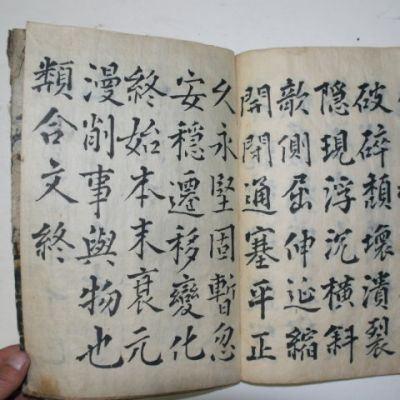 破碎頹壞潰裂
隱現浮沉橫斜
欹側屈伸延縮
開閉通塞平正
久永堅固暫忽
安穩遷移變化
終始本末衰元
漫削事與物也
類合文終